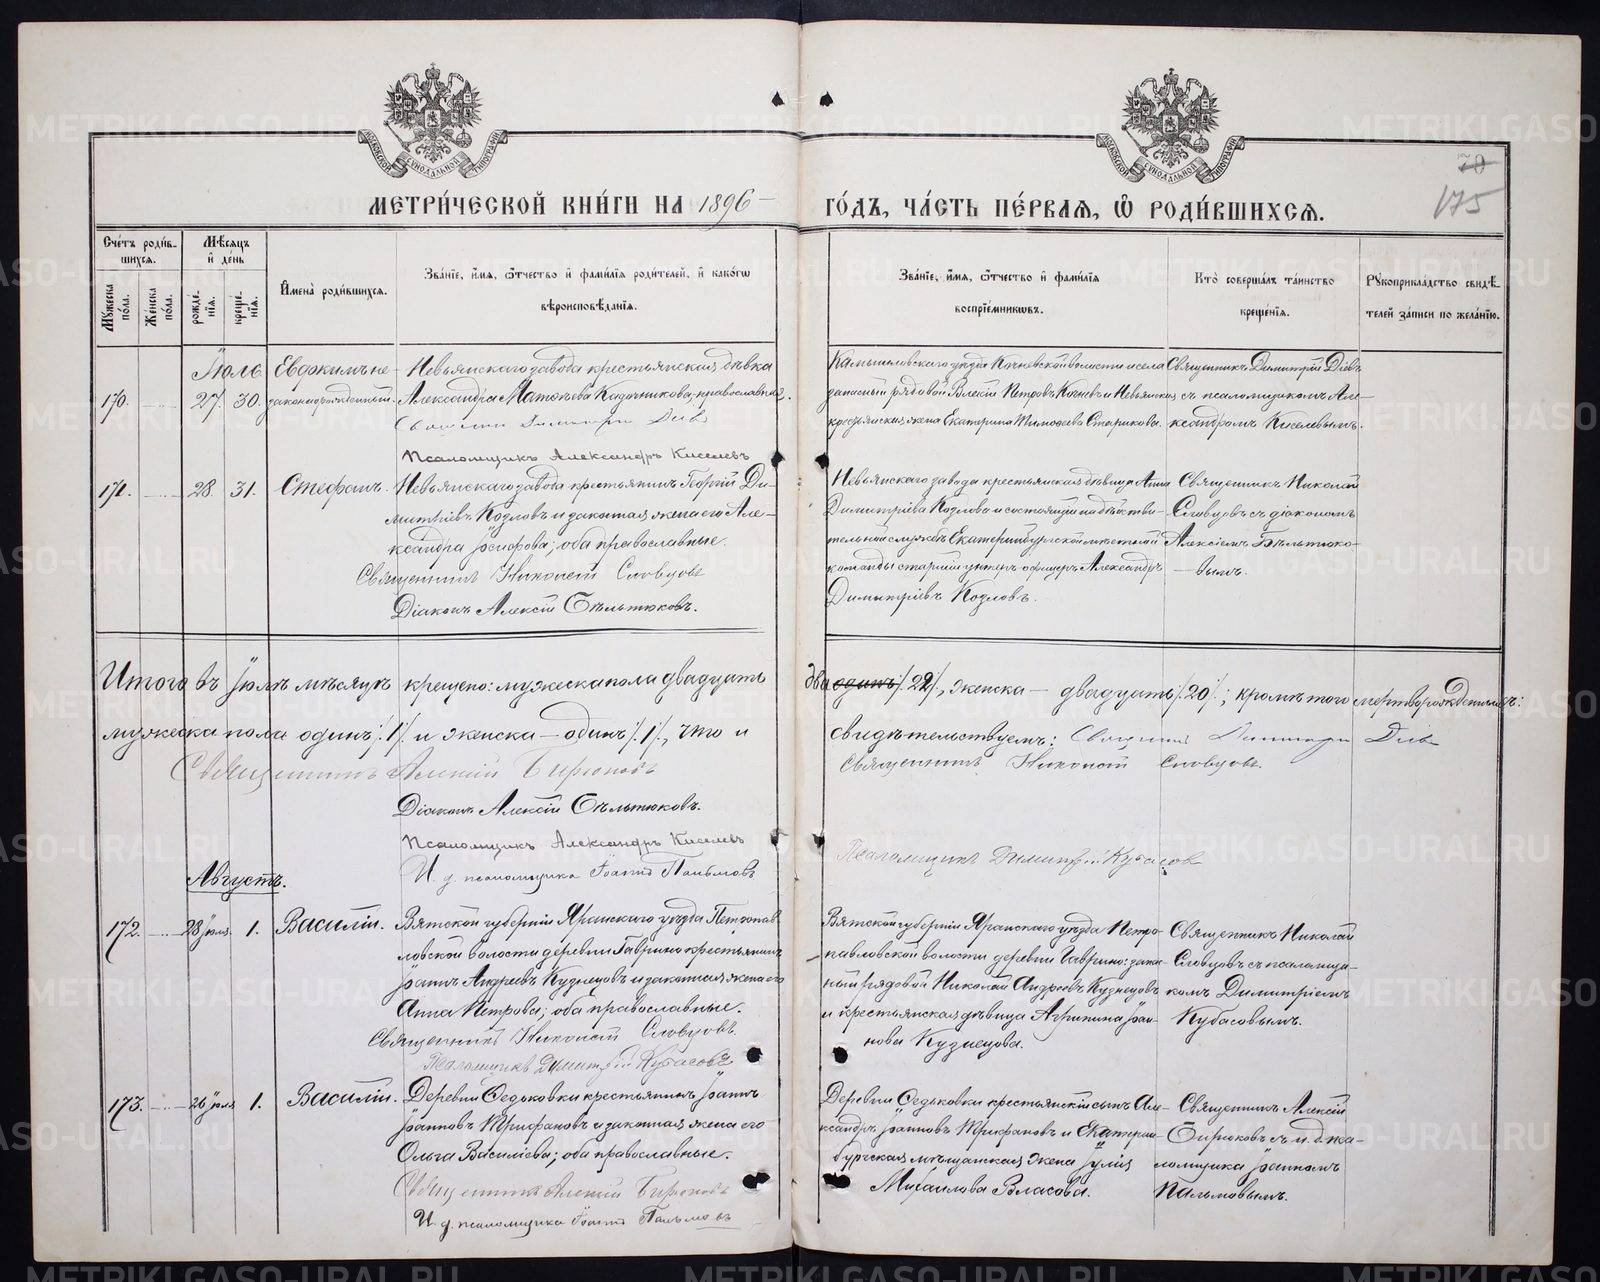 МЕТРИ́ЧЕСКОЙ КНИ́ГИ НА 1896
ГО́ДЪ, ЧА́СТЬ ПЕ́РВАЯ, Ѡ҆ РОДИ́ВШИХСЯ.
70
175
Сче́тъ роди́в-
шихся.
Мꙋ́жеска по́ла.
Же́нска по́ла.
Мѣ́сяцъ
и҆ де́нь
рожде-
нія.
креще-
нія.
И҆мена̀ роди́вшихся.
Зва́ніе, и҆́мя, ѻ҆́тчество и҆ фами́лія роди́телей, и҆ како́гѡ
вѣроисповѣ́данія.
Зва́ніе, и҆́мя, ѻ҆́тчество и҆ фами́лія
воспріе́мниковъ.
Кто̀ соверша́лъ та́инство
креще́нія.
Рꙋкоприкла́дство свидѣ́-
телей за́писи по жела́нію.
Іюль
170. 27. 30.
Евфимъ не-
законорожденный.
Невьянскаго завода крестьянская дѣвка
Александра Матвѣева Кадочникова, православная.
Псаломщикъ Александръ Киселевъ
Камышловскаго уѣзда Кочневской волости и села
запасный рядовой Петровъ Кочневъ и Невьянская
крестьянская жена Екатерина Тимофеева Старикова.
Священникъ Димитрій Діевъ
съ псаломщикомъ Але-
ксандромъ Киселевымъ.
171. 28. 31.
Стефанъ.
Невьянскаго завода крестьянинъ Георгій Ди-
митріевъ Козловъ и законная жена его Але-
ксандра Іосифова; оба православные.
Священникъ Николай Словцовъ
Діаконъ Алексій Бѣльтюковъ.
Невьянскаго завода крестьянская дѣвица Анна
Димитріева Козлова и состоящій на дѣйстви-
тельной службѣ Екатеринбургской мѣстной
команды старшій унтеръ-офицеръ Александръ
Димитріевъ Козловъ.
Священникъ Николай
Словцовъ съ діакономъ
Алексіемъ Бѣльтюко-
вымъ.
Итого въ Іюлѣ мѣсяцѣ крещено: мужеска пола двадцать
два одинъ /22/, женска – двадцать /20/; кромѣ того мертворожденныхъ:
мужеска пола одинъ /1/ и женска – одинъ /1/, что и
свидѣтельствуемъ: Священникъ Димитрій Діевъ
Священникъ Алексій Бирюковъ
Священникъ Николай Словцовъ.
Діаконъ Алексій Бѣльтюковъ.
Псаломщикъ Александръ Киселевъ
Псаломщикъ Димитрій Кубасовъ
И. д. псаломщика Іоаннъ Пальмовъ
Августъ.
172. 28 Іюля. 1.
Василій.
Вятской губерніи Яранскаго уѣзда Петропав-
ловской волости деревни Гаврино крестьянинъ
Іоаннъ Андреевъ Кузнецовъ и законная жена его
Анна Петрова; оба православные.
Священникъ Николай Словцовъ.
Псаломщикъ Димитрій Кубасовъ
Вятской губерніи Яранскаго уѣзда Петро-
павловской волости деревни Гаврино: запас-
ный рядовой Николай Андреевъ Кузнецовъ
и крестьянская дѣвица Агрипина Іоан-
нова Кузнецова.
Священникъ Николай
Словцовъ съ псаломщи-
комъ Димитріемъ
Кубасовымъ.
173. 26 Іюля 1.
Василій.
Деревни Ѳедьковки крестьянинъ Іоаннъ
Іоанновъ Трифановъ и законная жена его
Ольга Василіева; оба православные.
Священникъ Алексій Бирюковъ
И. д. псаломщика Іоаннъ Пальмовъ
Деревни Ѳедьковки крестьянскій сынъ Але-
ксандръ Іоанновъ Трифановъ и Екатерин-
бургская мѣщанская жена Іулія
Михаилова Власова.
Священникъ Алексій
Бирюковъ съ и. д. пса-
ломщика Іоанномъ
Пальмовымъ.